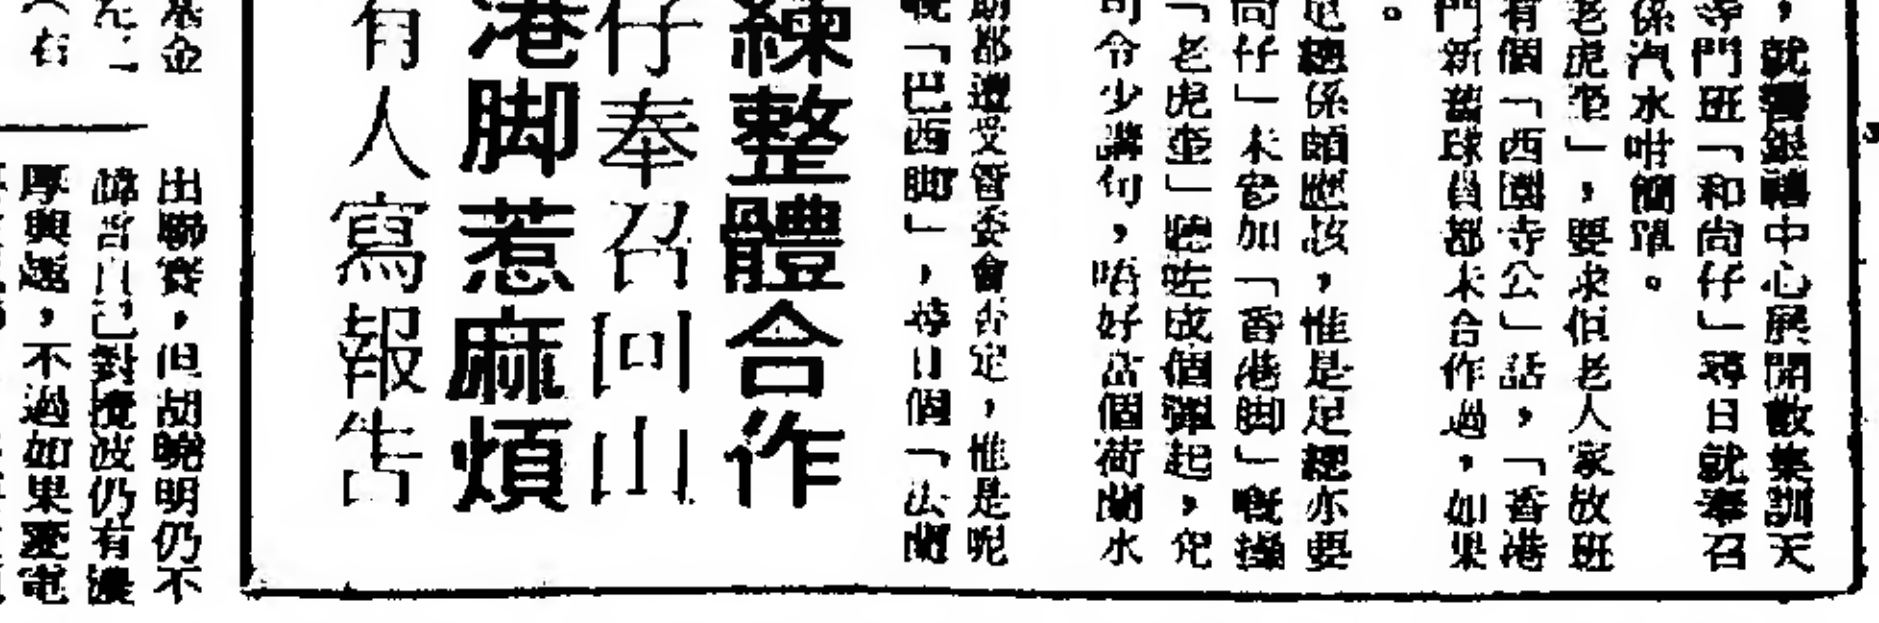 ，就喺銀禧中心展開散集訓天
寺門班「和尚仔」尋日就奉召
係汽水咁簡單。
老虎乸」，要求佢老人家放班
有個「西園寺公」話，「香港
門新舊球員都未合作過，如果
。
足總係頗應該，惟是足總亦要
尚仔」未參加「香港脚」嘅操
「老虎乸」聽咗成個彈起，佢
司令少講句，唔好當個荷蘭水
期都遭受管委會否定，惟是呢
嘅「巴西脚」，尋日個「法蘭
練整體合作
仔奉召回山
港脚惹麻煩
有人寫報告
基金
出聯賽，但胡曉明仍不
諱言自己對攪波仍有濃
厚興趣，不過如果愛電